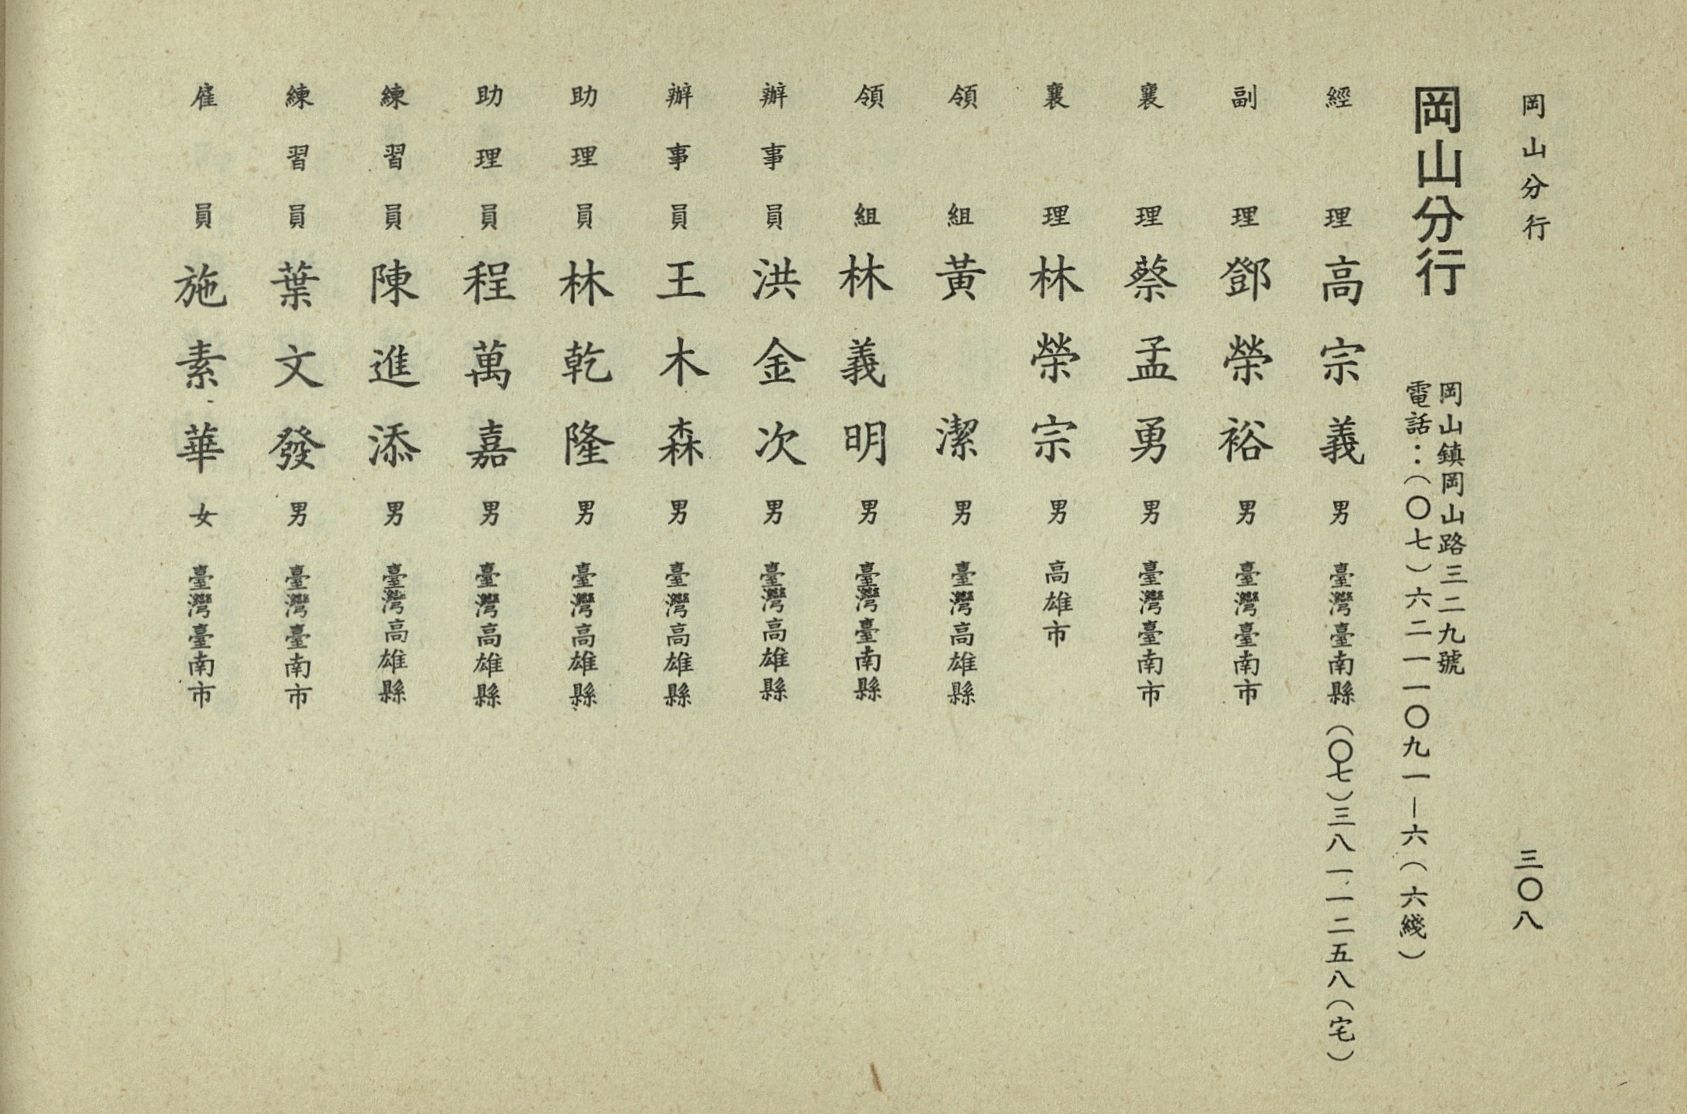 岡山分行
三〇八
岡山分行
岡山鎮岡山路三二九號
電話：（〇七）六二一一〇九一—六（六綫）
經理高宗義男臺灣臺南縣（〇七）三八一一二五八（宅）
副理鄧榮裕男臺灣臺南市
襄理蔡孟勇男臺灣臺南市
襄理林榮宗男高雄市
領組黃潔男臺灣高雄縣
領組林義明男臺灣臺南縣
辦事員洪金次男臺灣高雄縣
辦事員王木森男臺灣高雄縣
助理員林乾隆男臺灣高雄縣
助理員程萬嘉男臺灣高雄縣
練習員陳進添男臺灣高雄縣
練習員葉文發男臺灣臺南市
雇員施素華女臺灣臺南市